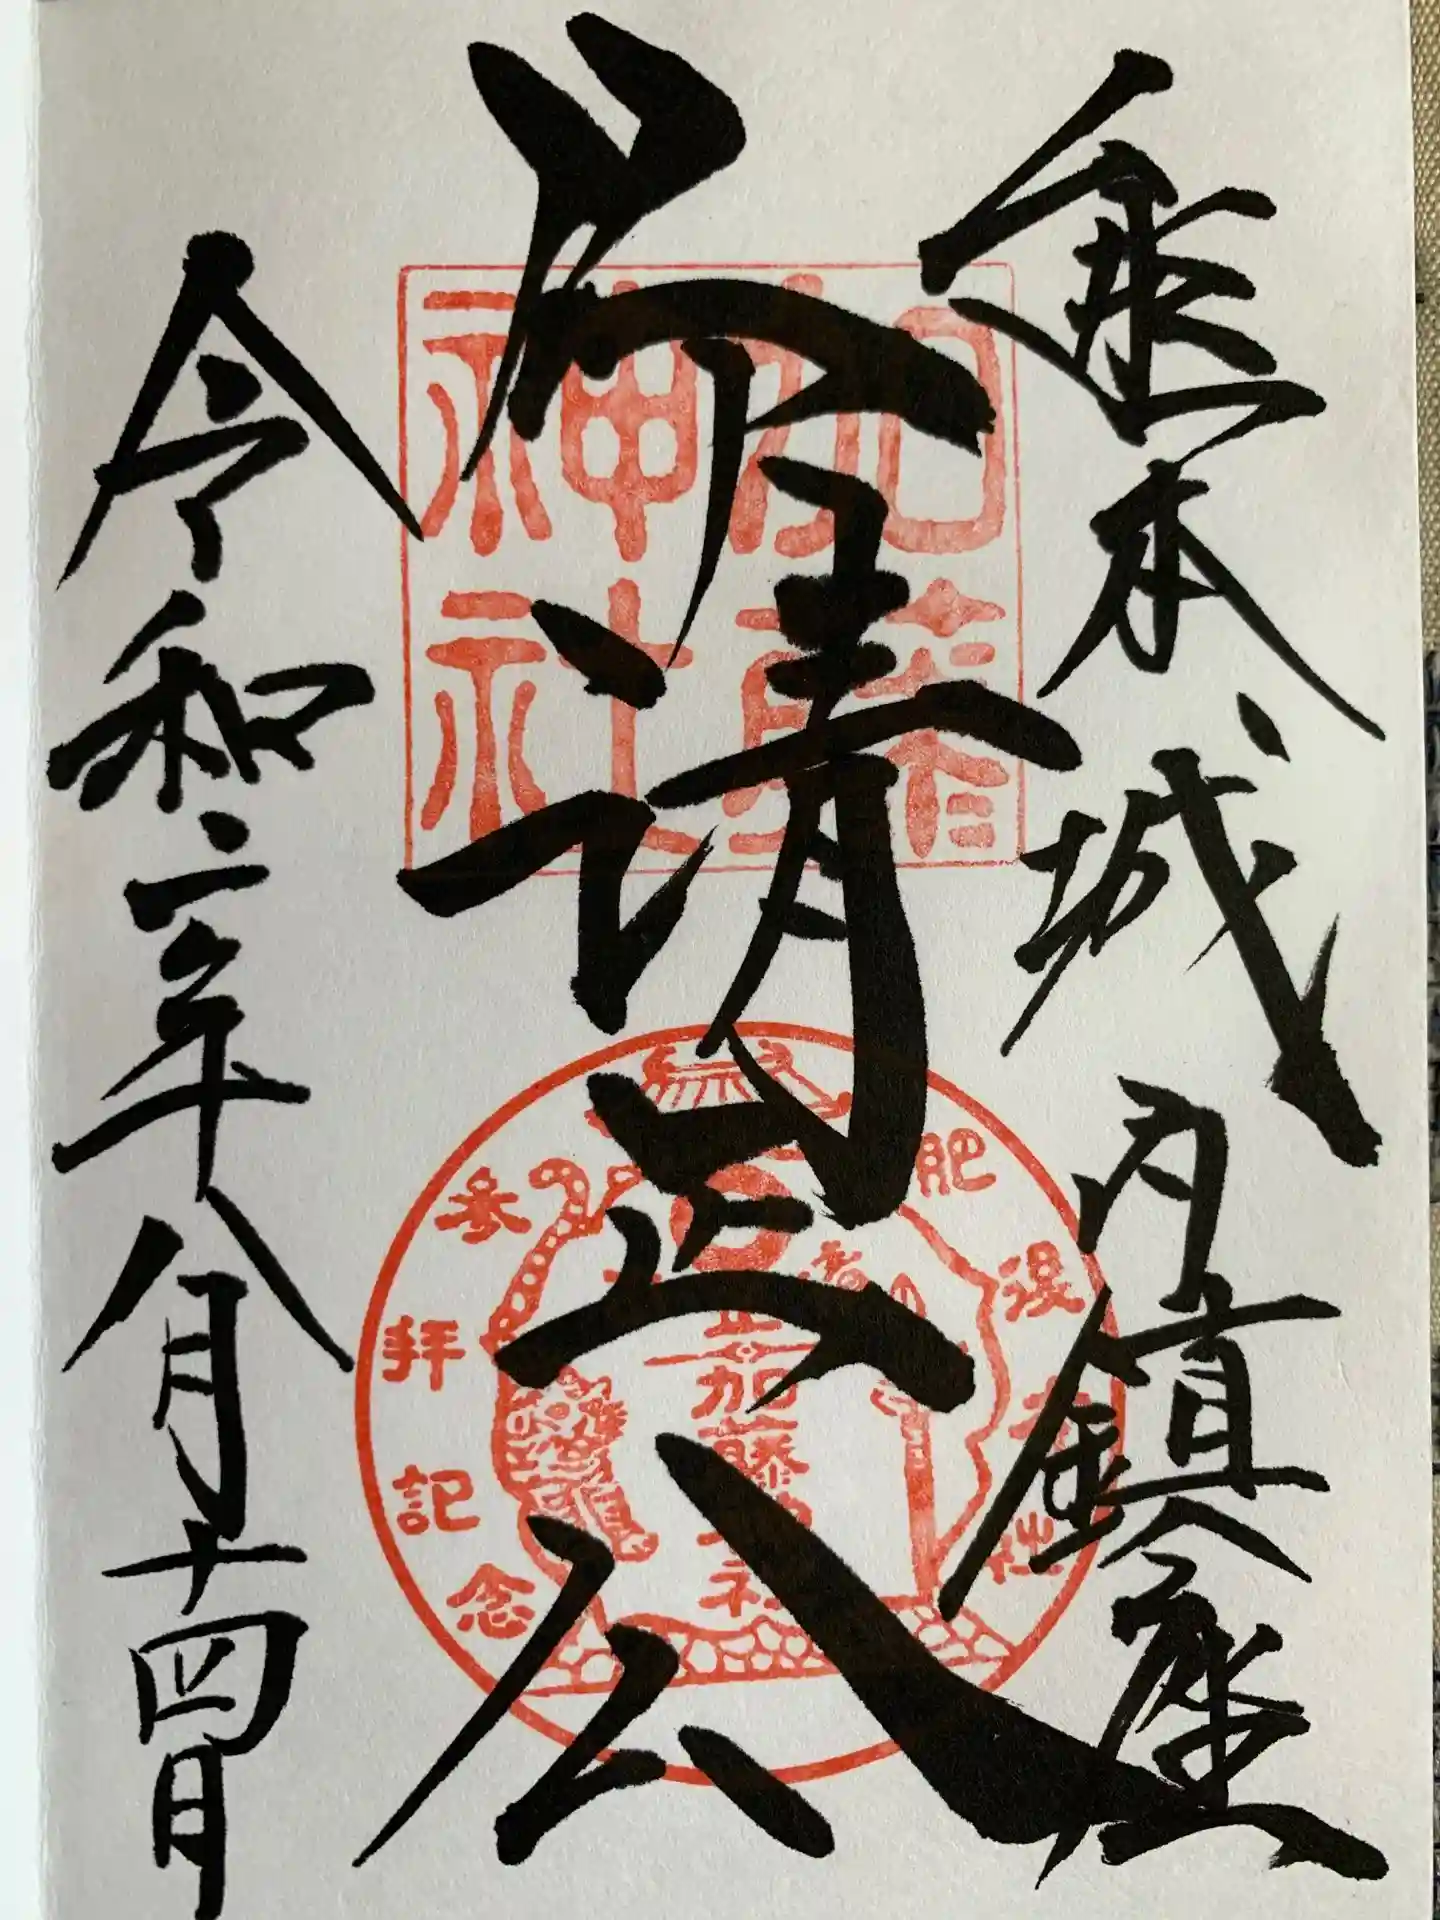 熊本城内鎮座
清正公
令和二年八月十四日
加藤
神社
肥後本社
加藤神社
参拝記念